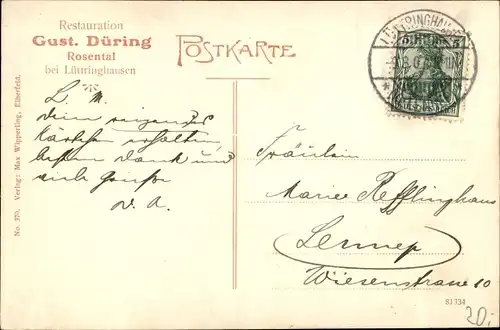 Restauration
Gust. Düring
Rosental
bei Lüttringhausen
POSTKARTE
LÜTTRINGHAUSEN
L. M.
Dein reizendes
Kärtchen erhalten
besten Dank und
viele Grüße
D. A.
Fräulein
Marie Refflinghaus
Lennep
Wiesenstrasse 10
No. 370. Verlag: Max Wipperling, Elberfeld.
81334
20,-